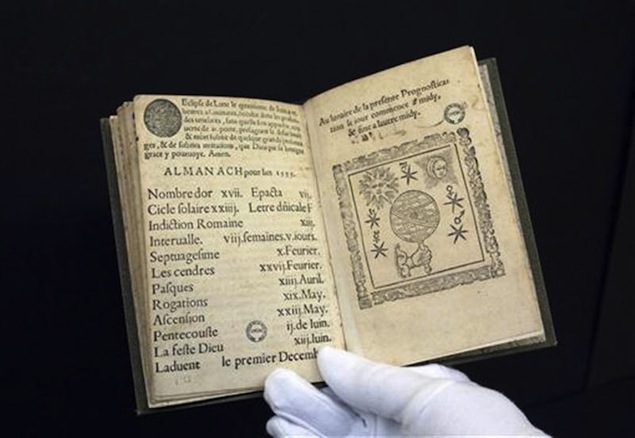 Eclipse de Lune le
heures
& mort
ges, & de que Dieu par sa benigne
grace y pouruoye. Amen.
ALMANACH pour lan 1555.
Nombre dor xvij. Epacta vij.
Cicle solaire xxiiij. Letre dñicale F
Indiction Romaine xiij.
Interualle. viij.semaines.v.iours.
Septuagesime x.Feurier.
Les cendres xxvij.Feurier.
Pasques xiiij.Auril.
Rogations xix.May.
Ascension xxiij.May.
Pentecouste ij.de Iuin.
La feste Dieu xiij.Iuin.
Laduent le premier Decemb
Au luraire de la presente Prognostica
tion le iour commence a midy,
& fine a lautre midy.